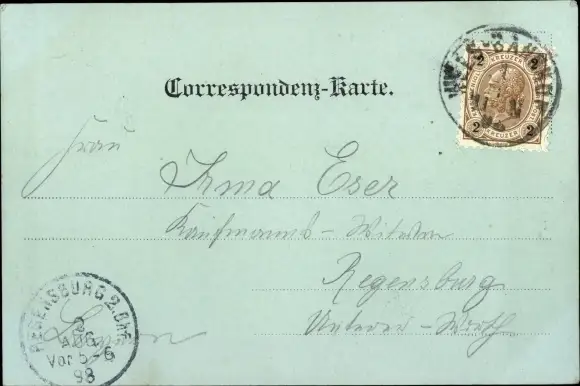 2 2
KREUZER
KREUZER
2 2
Correspondenz-Karte.
Frau
Irma Eser
Kaufmanns-Witwe
Regensburg
Unterer-Wörth
Bayern
REGENSBURG 2. Bhf.
3
AUG.
Vor 5-6
98